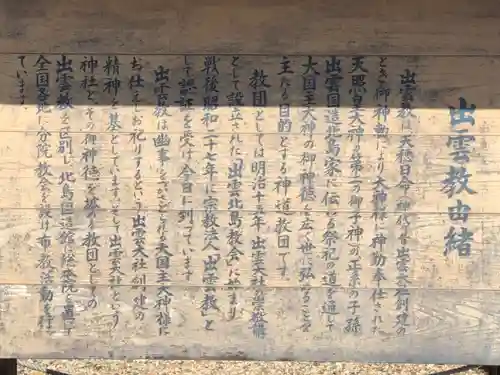 出雲教由緒
出雲教は天穂日命が神代の昔出雲大社創建の
とき御神勅により大神様に神勤奉仕された
天照皇大神の第二の御子神の正系の子孫
出雲国造北島家に伝わる祭祀の道を通して
大国主大神の御神徳を広く世に弘めることを
主たる目的とする神道教団です。
教団としては明治十五年、出雲大社
として設立された「出雲北島教会」に始まり
戦後昭和二十七年に宗教法人「出雲教」と
して認証を受け今日に到っています
出雲教は幽事を治らされる大国主大神様に
お仕えをお祀りするという出雲大社創建の
精神を基としていますそして出雲大社という
神社とその御神徳を広める教団としての
出雲教を区別し北島国造館を総本院と
全国各地に分院教会を設け布教活動を行っ
ています。